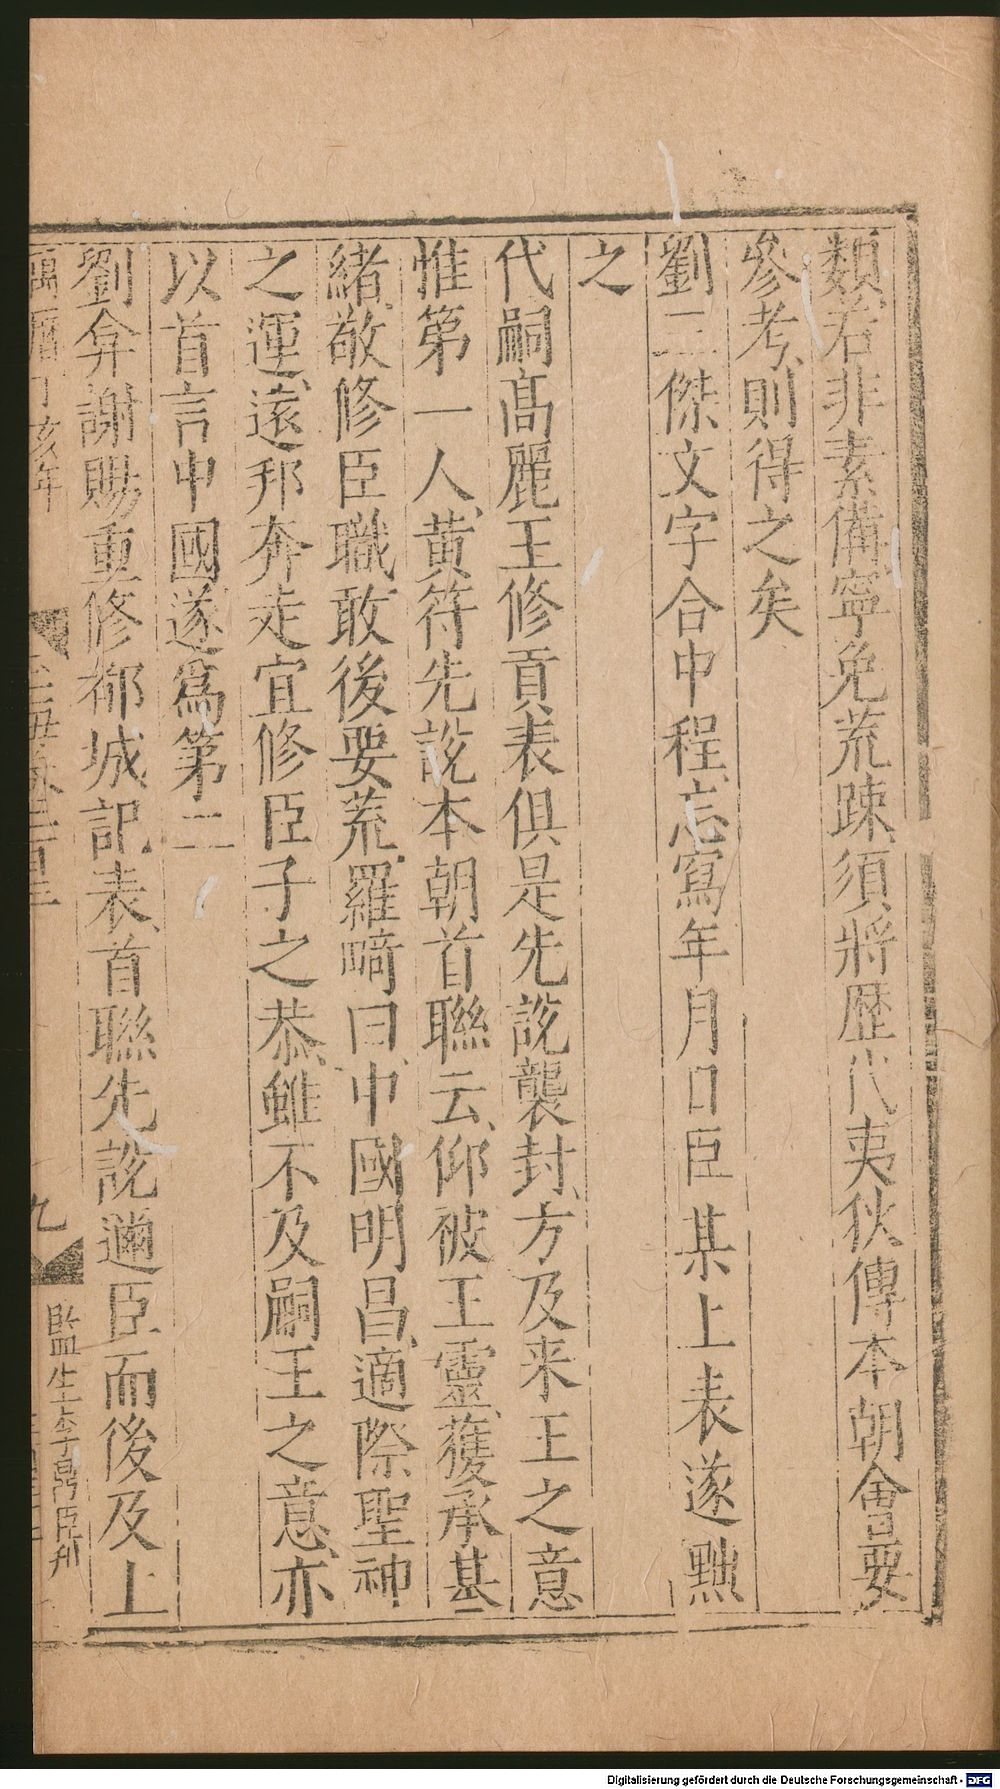 類若非素備寧免荒踈須將歴代夷狄傳本朝會要
參考則得之矣
劉二傑文字合中程忘寫年月日臣某上表遂黜
之
代嗣髙麗王修貢表俱是先說襲封方及来王之意
惟第一人黄符先說本朝首聯云仰被王靈獲承基
緒敬修臣職敢後要荒羅畸曰中國明昌適際聖神
之運遠邦奔走宜修臣子之恭雖不及嗣王之意亦
以首言中國遂爲第二
劉弇謝賜重修都城記表首聯先說邇臣而後及上
萬曆丁亥年
九
監生李
刋
Digitalisierung gefördert durch die Deutsche Forschungsgemeinschaft - DFG